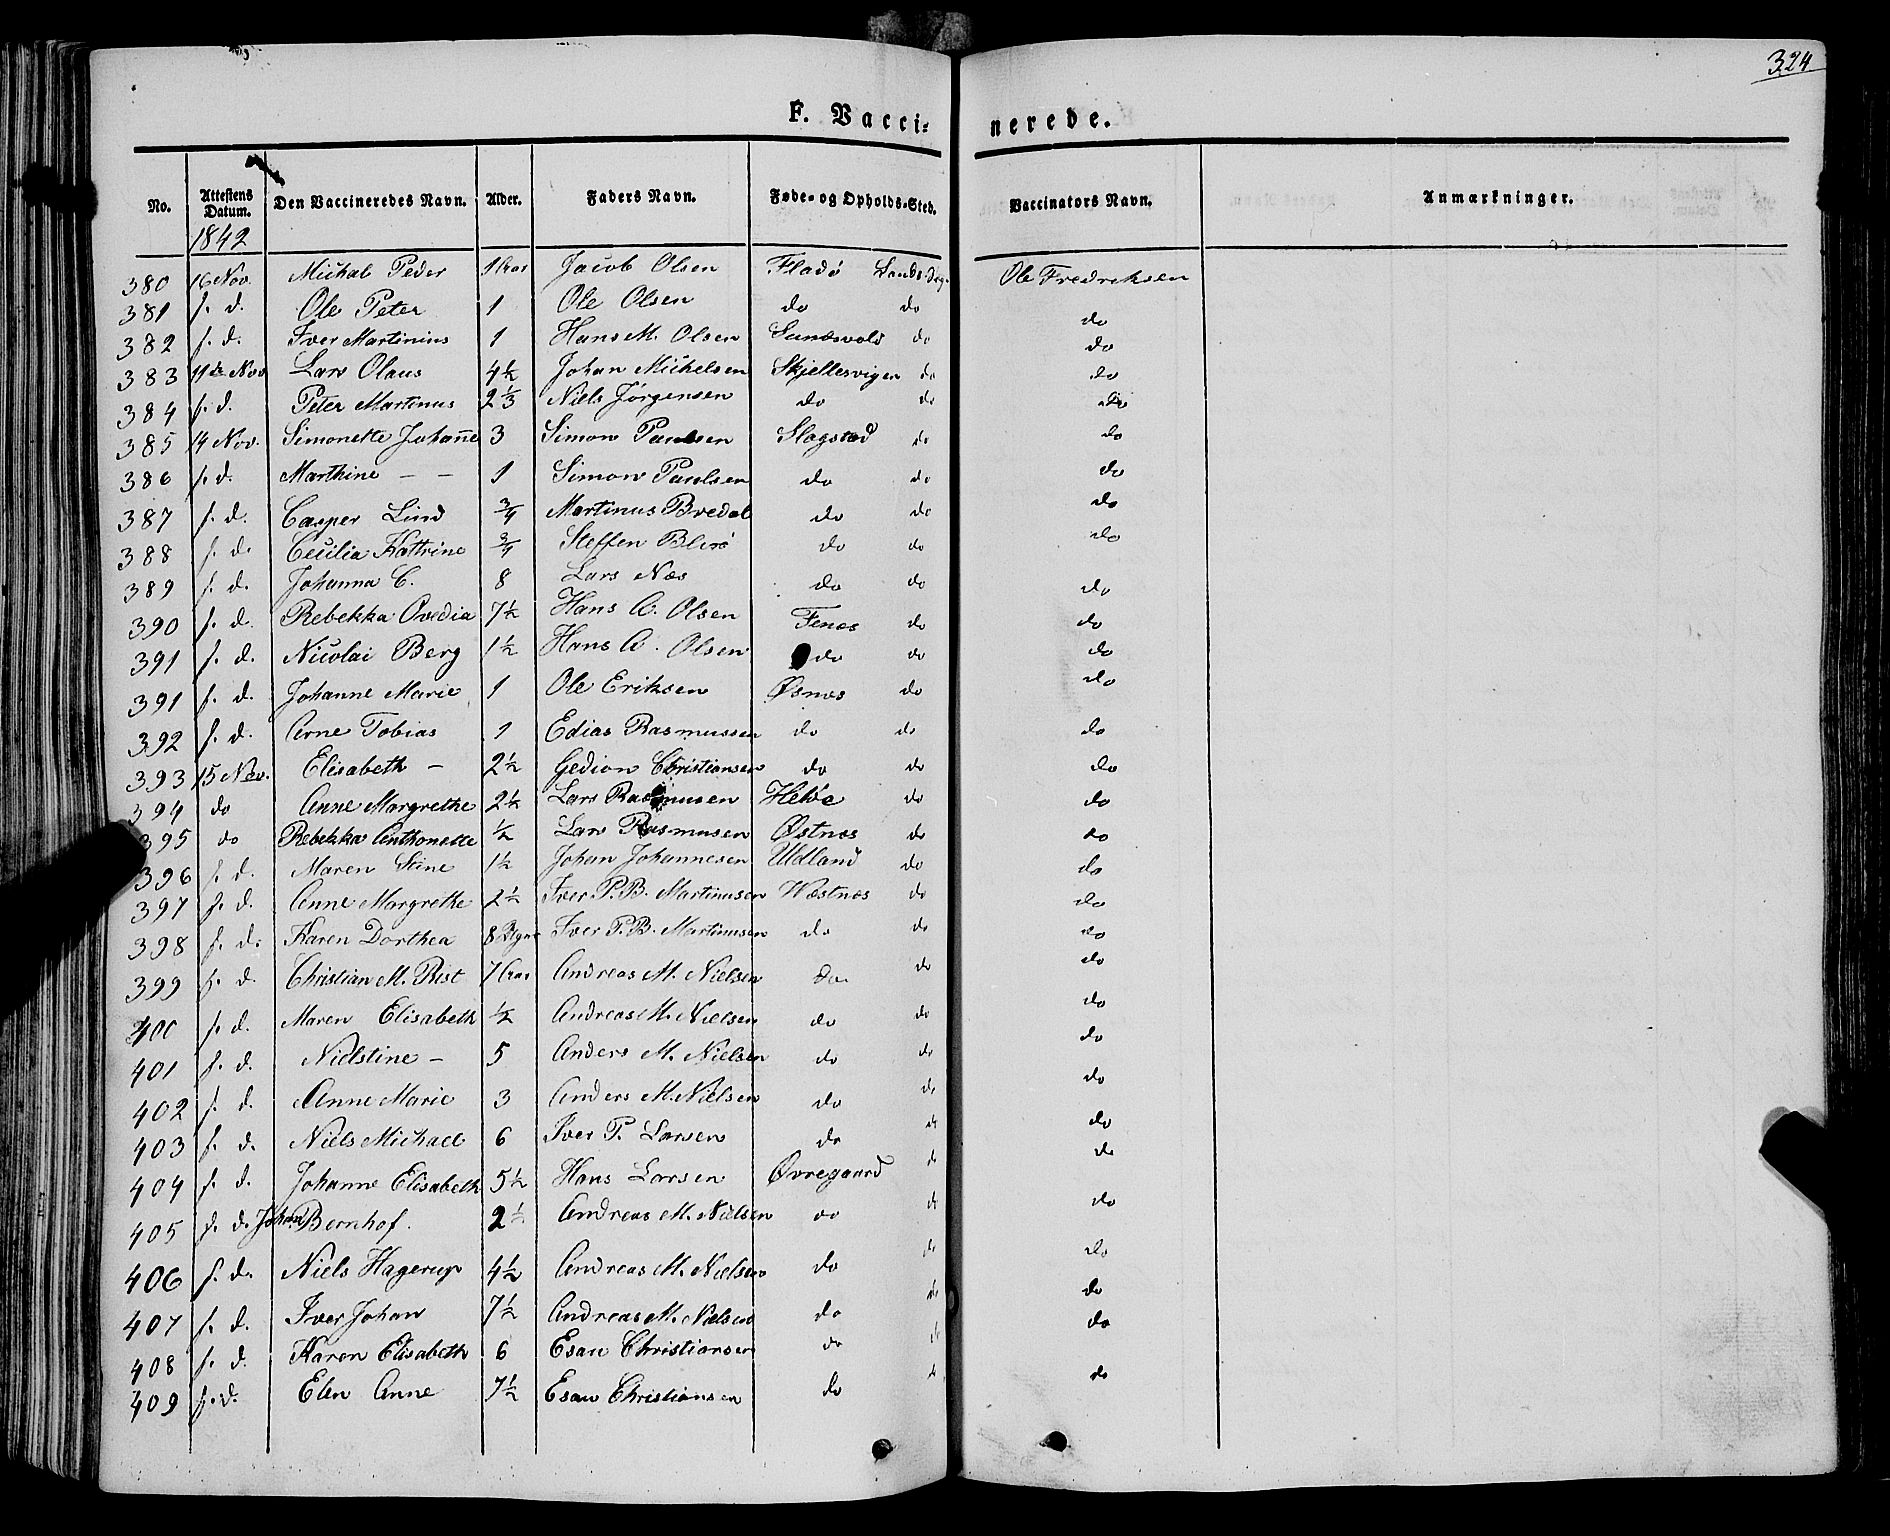 324
F. Vacci- nerede.
No. Attestens Datum. Den Vaccineredes Navn. Alder. Faders Navn. Føde- og Opholds-Sted. Vaccinators Navn. Anmærkninger.
1842
380 16 Nov. Michal Peder 1 Aar Jacob Olsen Fladø Ole Fredriksen
381 s. d. Ole Peter 1 Ole Olsen do do do
382 s. d. Iver Martinius 1 Hans M. Olsen Sundsvold do do
383 11te Nov Lars Olaus 4½ Johan Michelsen Skjellesvigen do do
384 s. d. Peter Martinus 2⅓ Niels Jørgensen do do do
385 14 Nov. Simonette Johanne 3 Simon Paulsen Slagstad do do
386 s. d. Marthine — — 1 Simon Paulsen do do do
387 s. d. Casper Lind ¾ Martinus Bredal do do do
388 s. d. Cecilia Kattrine ¾ Steffen Blisø do do do
389 s. d. Johanna C. 8 Lars Næs do do do
390 s. d. Rebekka Ovedia 7½ Hans A. Olsen Fenes do do
391 s. d. Nicolai Berg 1½ Hans A. Olsen do do do
391 s. d. Johanne Marie 1 Ole Eriksen Øsnes do do
392 s. d. Arne Tobias 1 Edias Rasmussen do do do
393 15 Nov. Elisabeth — 2½ Gedion Christiansen do do do
394 do Anne Margrethe 2½ Lars Rasmusen do do
395 do Rebekka Anthonette ½ Lars Rasmusen Østnes do do
396 s. d. Maren Stine 1½ Johan Johannesen Uldland do do
397 s. d. Anne Margrethe 2½ Iver P. B. Martinusen Wæstnes do do
398 s. d. Karen Dorthea 8 Iver P. B. Martinusen do do do
399 s. d. Christian M. Rist 7 Aar Andreas M. Nielsen do. do do
400 s. d. Maren Elisabeth ½ Andreas M. Nielsen do do do
401 s. d. Nielstine — 5 Anders M. Nielsen do do do
402 s. d. Anne Marie 3 Anders M. Nielsen do do do
403 s. d. Niels Michael 6 Iver P. Larsen do do do
404 s. d. Johanne Elisabeth 5½ Hans Larsen Øvregaard do do
405 s. d. Johan Bernhof. 2½ Andreas M. Nielsen do do do
406 s. d. Niels Hagerup 4½ Andreas M. Nielsen do do do
407 s. d. Iver Johan 7½ Andreas M. Nielsen do do do
408 s. d. Karen Elisabeth 6 Esau Christiansen do do do
409 s. d. Elen Anne 7½ Esau Christiansen do do do